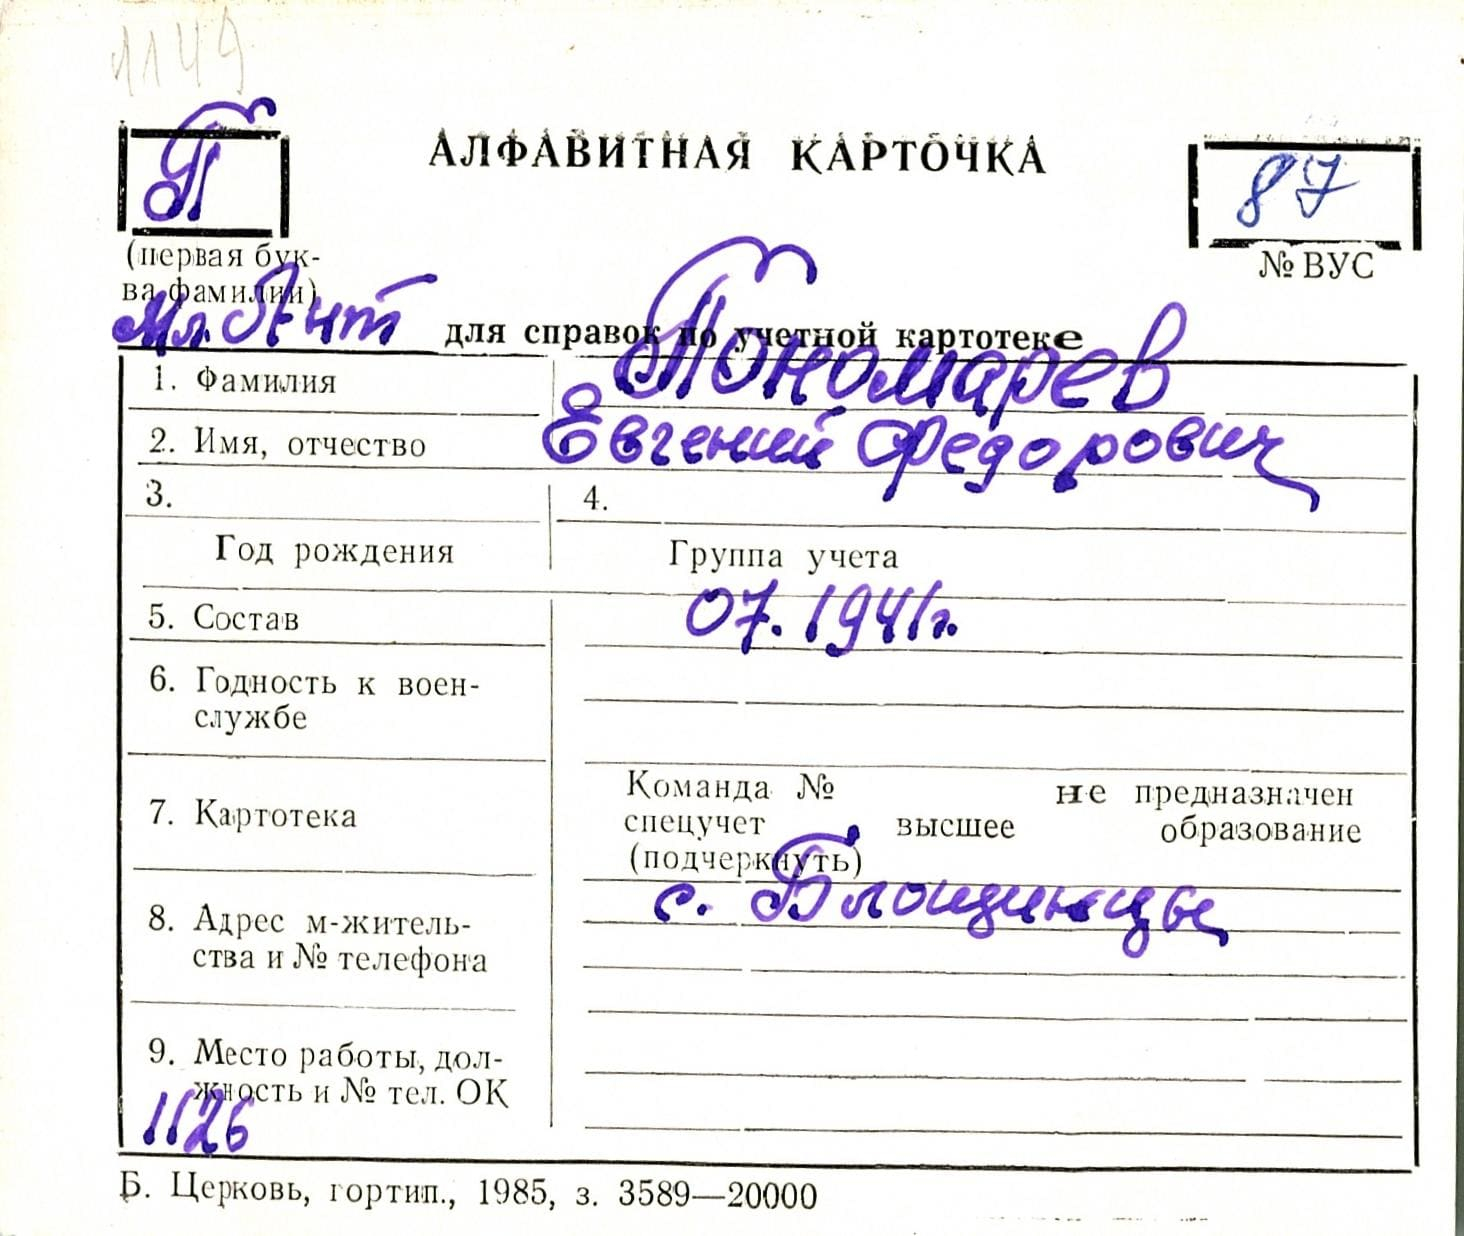 1149
П
АЛФАВИТНАЯ КАРТОЧКА
87
(первая бук-
ва фамилии)
№ ВУС
Мл. Лнт
для справок по учетной картотеке
1. Фамилия
Пономарев
2. Имя, отчество
Евгений Федорович
3.
4.
Год рождения
Группа учета
5. Состав
07.1941г.
6. Годность к воен-
службе
7. Картотека
Команда № не предназначен
спецучет высшее образование
(подчеркнуть)
8. Адрес м-житель-
ства и № телефона
с. Блощинцы
9. Место работы, дол-
жность и № тел. ОК
1126
Б. Церковь, гортип., 1985, з. 3589—20000